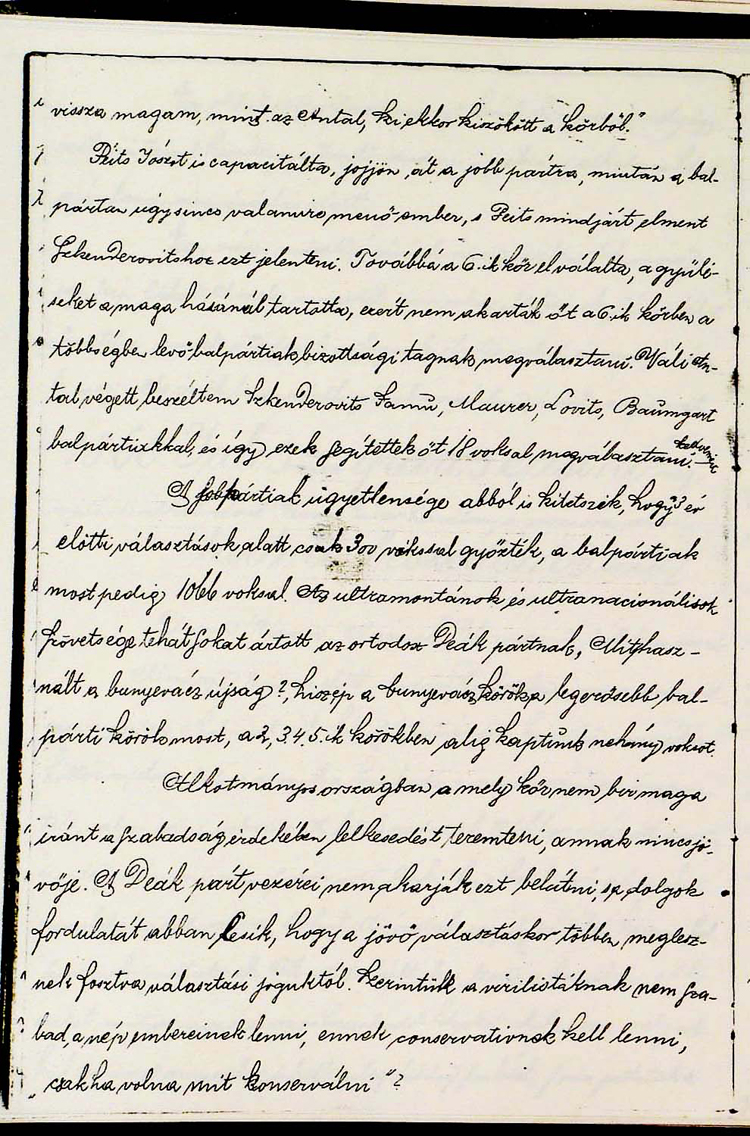 vissza magam, mint az Antal, ki ekkor kiszökött a körből."
Peits Józsit is capacitálta, jojjön át a jobb pártra, miután a bal-
pártan úgy sincs valamire menő ember, s Peits mindjárt elment
Szkenderovitshoz ezt jelenteni. Továbbá a 6.ik kör elválalta, a gyűlé-
seket a maga házánál tartotta, ezért nem akarták őt a 6.ik körben a
többségben levő balpártiak bizottsági tagnak megválasztani. Váli An-
tal végett beszéltem Szkenderovits Samu, Maurer, Lovits, Baumgart
balpártiakkal, és így ezek segítettek őt 18 voksal megválasztani.
A jobbpártiak ügyetlensége abból is kitetszik, hogy 3 év
előtti választások alatt csak 300 vokssal győzték, a balpártiak
most pedig 1066 voksal. Az ultramontánok és ultranacionálisok
szövetsége tehát sokat ártott az ortodox Deák pártnak, Mit hasz-
nált a bunyevácz újság?, hiszép a bunyevácz körök a legerősebb bal-
párti körök most, a 2, 3. 4. 5. ik körökben alig kaptunk nehány voksot.
Alkotmányos országban a mely kör nem bir maga
iránt a szabadság érdekében lelkesedést teremteni, annak nincs jö-
vője. A Deák párt vezérei nem akarják ezt belátni, s a dolgok
fordulatát abban lesik, hogy a jövő választáskor többen meglesz-
nek fosztva választási joguktól. Szerintük a virilistáknak nem sza-
bad, a nép embereinek lenni, ennek conservativnek kell lenni,
„csak ha volna mit konserválni"?